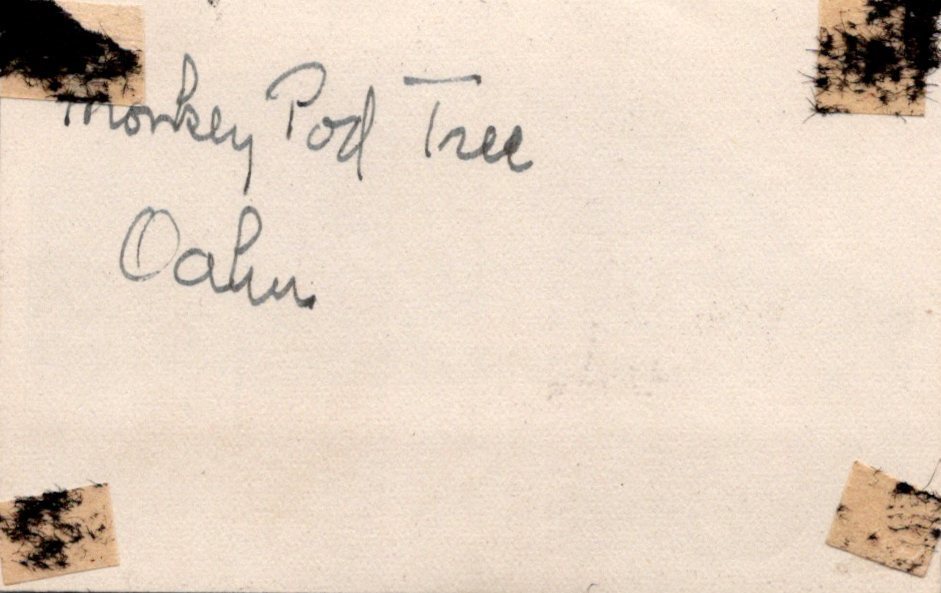 Monkey Pod Tree
Oahu